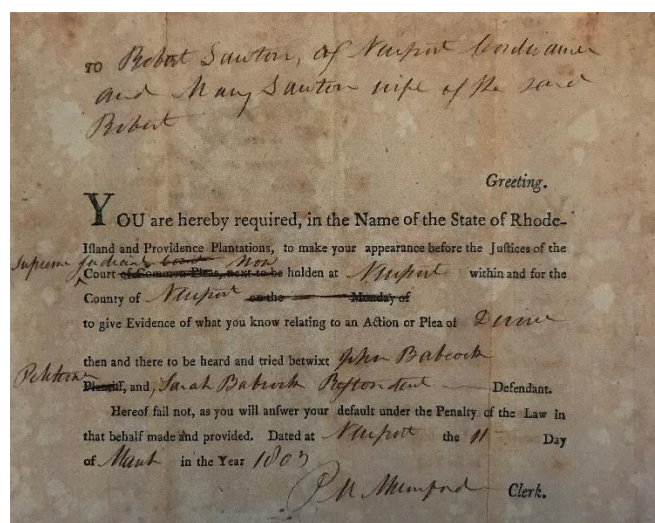 TO Robert Lawton, of Newport Cordwainer
and Mary Lawton wife of the said
Robert
Greeting.
YOU are hereby required, in the Name of the State of Rhode-
Island and Providence Plantations, to make your appearance before the Justices of the
Supreme Judicial Court of Common Pleas, next to be now holden at Newport within and for the
County of Newport on the Monday of
to give Evidence of what you know relating to an Action or Plea of Divorce
then and there to be heard and tried betwixt John Babcock
Petitioner Plaintiff, and, Sarah Babcock Respondent Defendant.
Hereof fail not, as you will anſwer your default under the Penalty of the Law in
that behalf made and provided. Dated at Newport the 11 Day
of March in the Year 1803
P M Mumford Clerk.